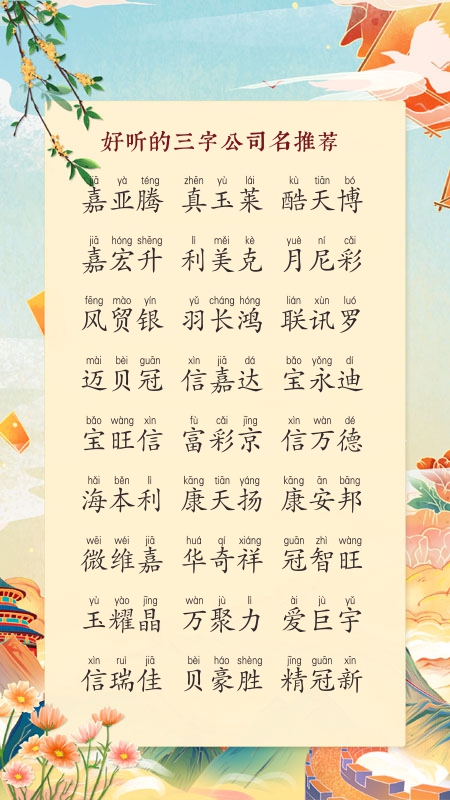 好听的三字公司名推荐
jiā yà téng zhēn yù lái kù tiān bó
嘉亚腾 真玉莱 酷天博
jiā hóng shēng lì měi kè yuè ní cǎi
嘉宏升 利美克 月尼彩
fēng mào yín yǔ cháng hóng lián xùn luó
风贸银 羽长鸿 联讯罗
mài bèi guān xìn jiā dá bǎo yǒng dí
迈贝冠 信嘉达 宝永迪
bǎo wàng xìn fù cǎi jīng xìn wàn dé
宝旺信 富彩京 信万德
hǎi běn lì kāng tiān yáng kāng ān bāng
海本利 康天扬 康安邦
wēi wéi jiā huá qí xiáng guān zhì wàng
微维嘉 华奇祥 冠智旺
yù yào jīng wàn jù lì ài jù yǔ
玉耀晶 万聚力 爱巨宇
xìn ruì jiā bèi háo shèng jīng guān xīn
信瑞佳 贝豪胜 精冠新